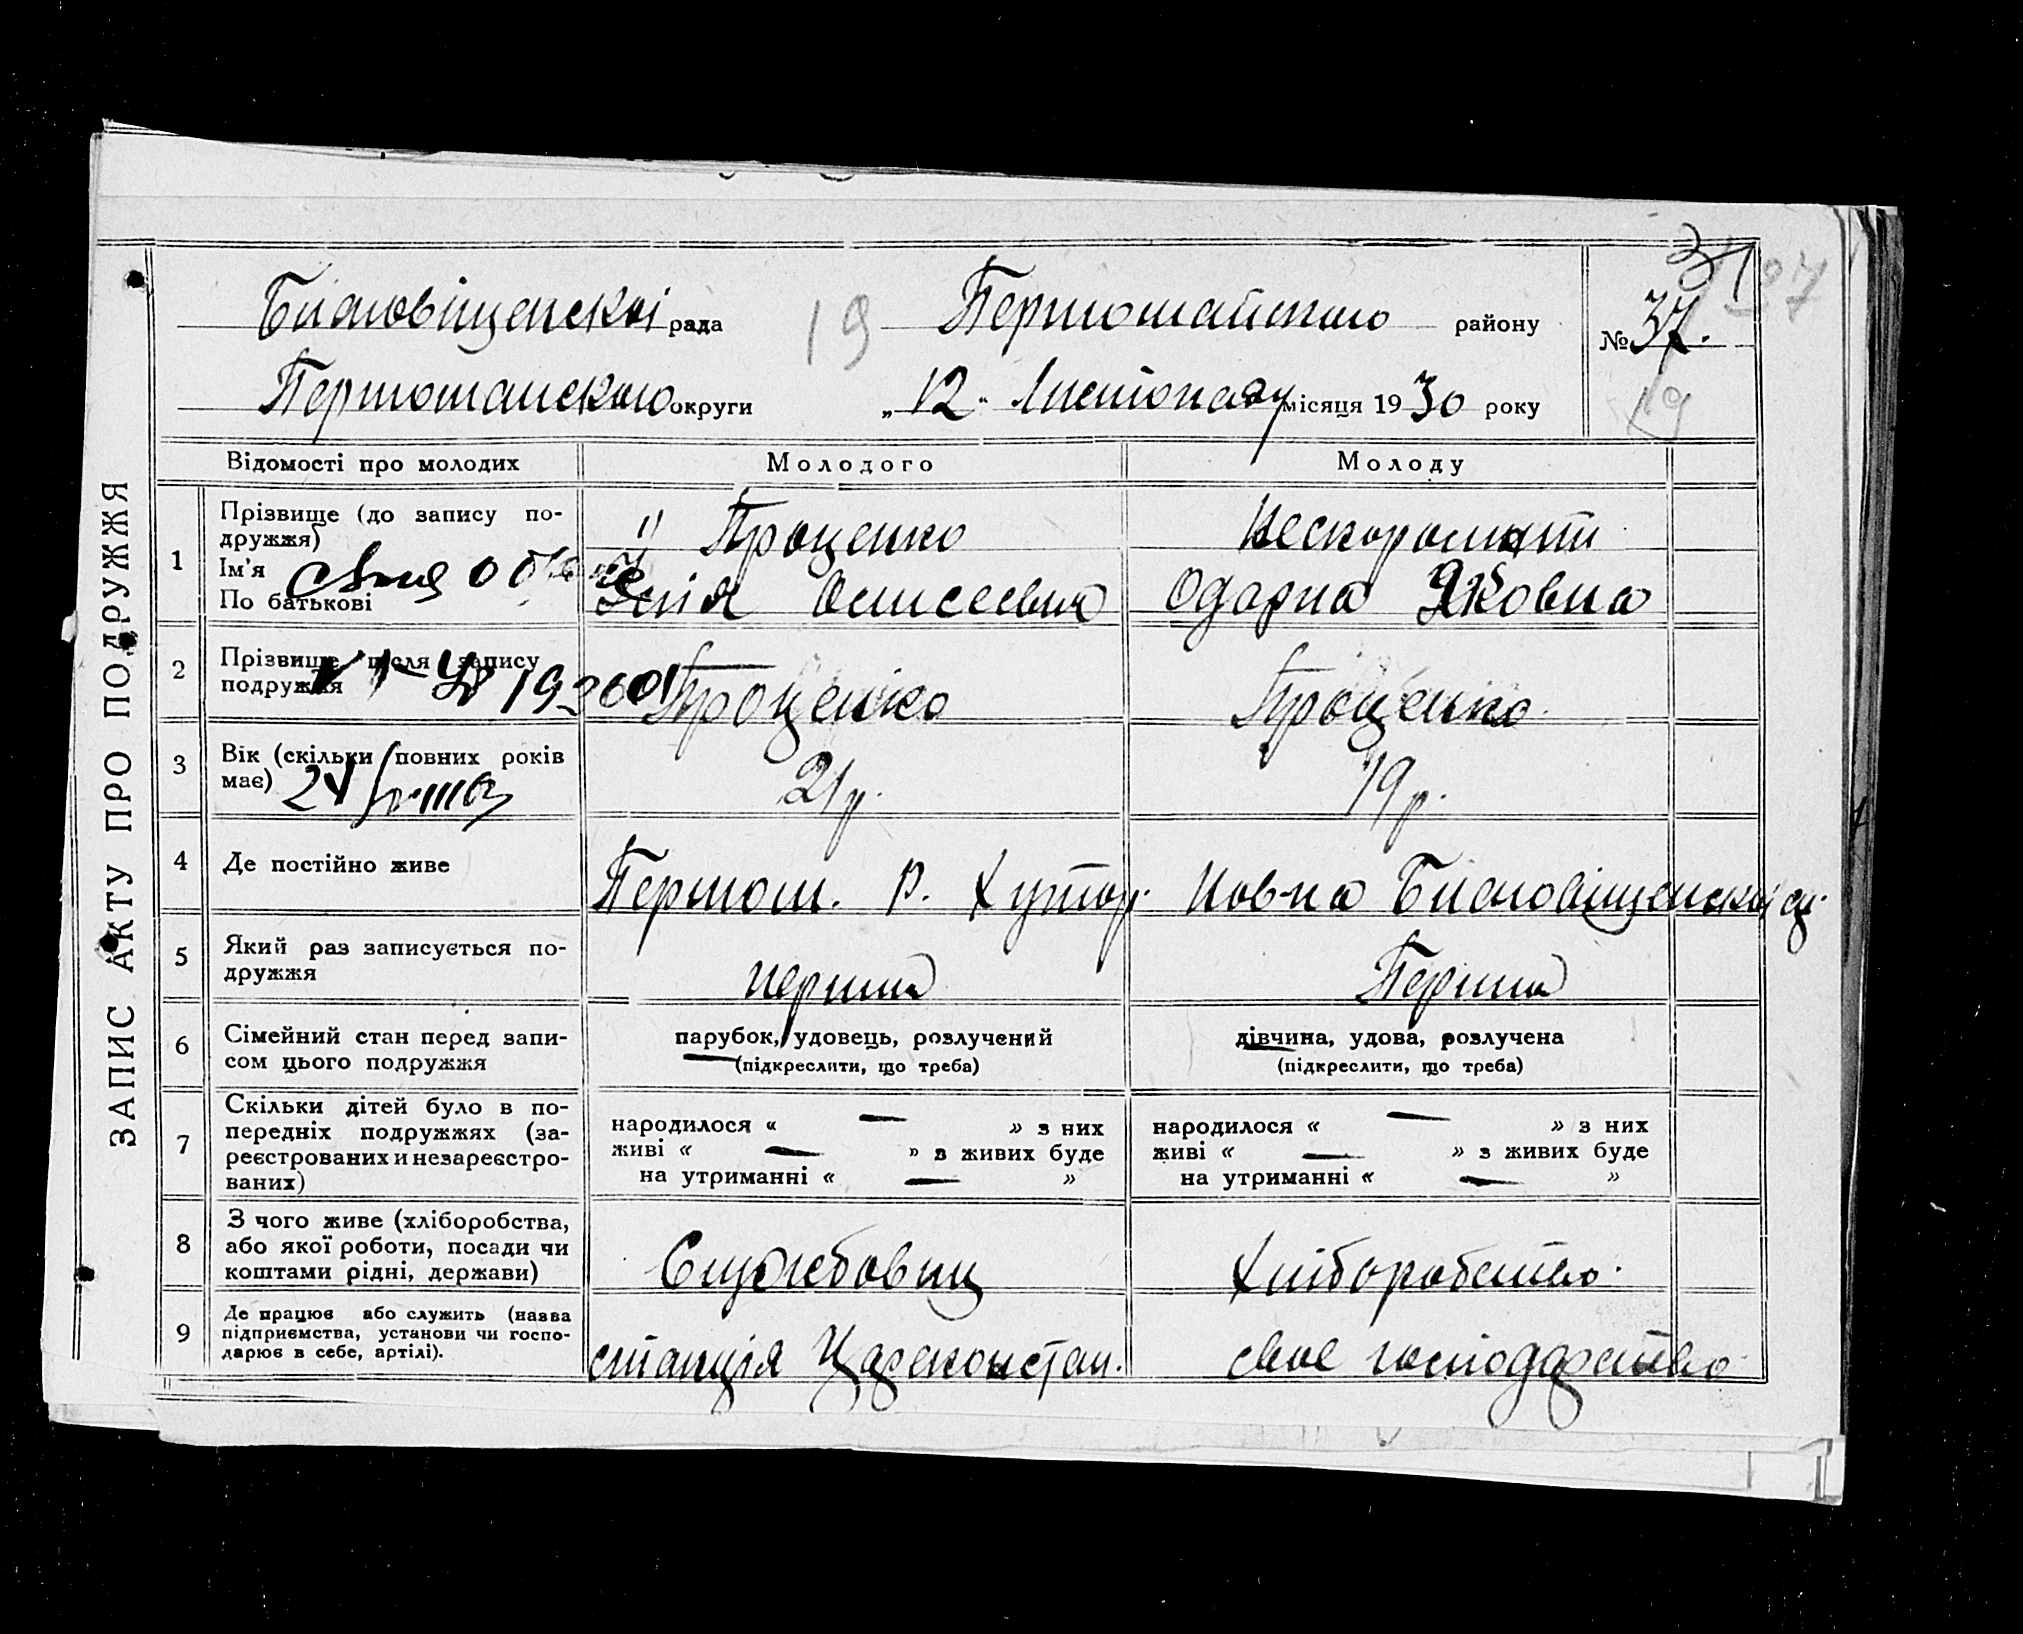 ЗАПИС АКТУ ПРО ПОДРУЖЖЯ
Благовіщенскої рада 19 Першомайського району № 37.
Першомайского округи „12“ Листопаду місяця 1930 року 19
Відомості про молодих Молодого Молоду
1 Прізвище (до запису по-
дружжя) Проценко
Ім'я
По батькові Одарка Яковна
2 Прізвище після запису
подружжя Проценко Проценко
3 Вік (скільки повних років
має) 21 р. 19 р.
4 Де постійно живе Першом. Р. Хутор.
5 Який раз записується по-
дружжя перший Перший
6 Сімейний стан перед запи-
сом цього подружжя
парубок, удовець, розлучений
(підкреслити, що треба)
дівчина, удова, розлучена
(підкреслити, що треба)
7 Скільки дітей було в по-
передніх подружжях (за-
реєстрованих и незареєстро-
ваних)
народилося « — » з них
живі « — » з живих буде
на утриманні « — »
народилося « — » з них
живі « — » з живих буде
на утриманні « — »
8 З чого живе (хліборобства,
або якої роботи, посади чи
коштами рідні, держави) Службовец Хліборобство.
9 Де працює або служить (назва
підприємства, установи чи госпо-
дарює в себе, артілі). станція Цареконстан. своє господарство